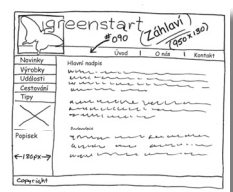 greenstart
#090
(Záhlaví)
(950×180)
Úvod | O nás | Kontakt
Novinky
Výrobky
Události
Cestování
Tipy
Hlavní nadpis
Popisek
←180px→
Copyright